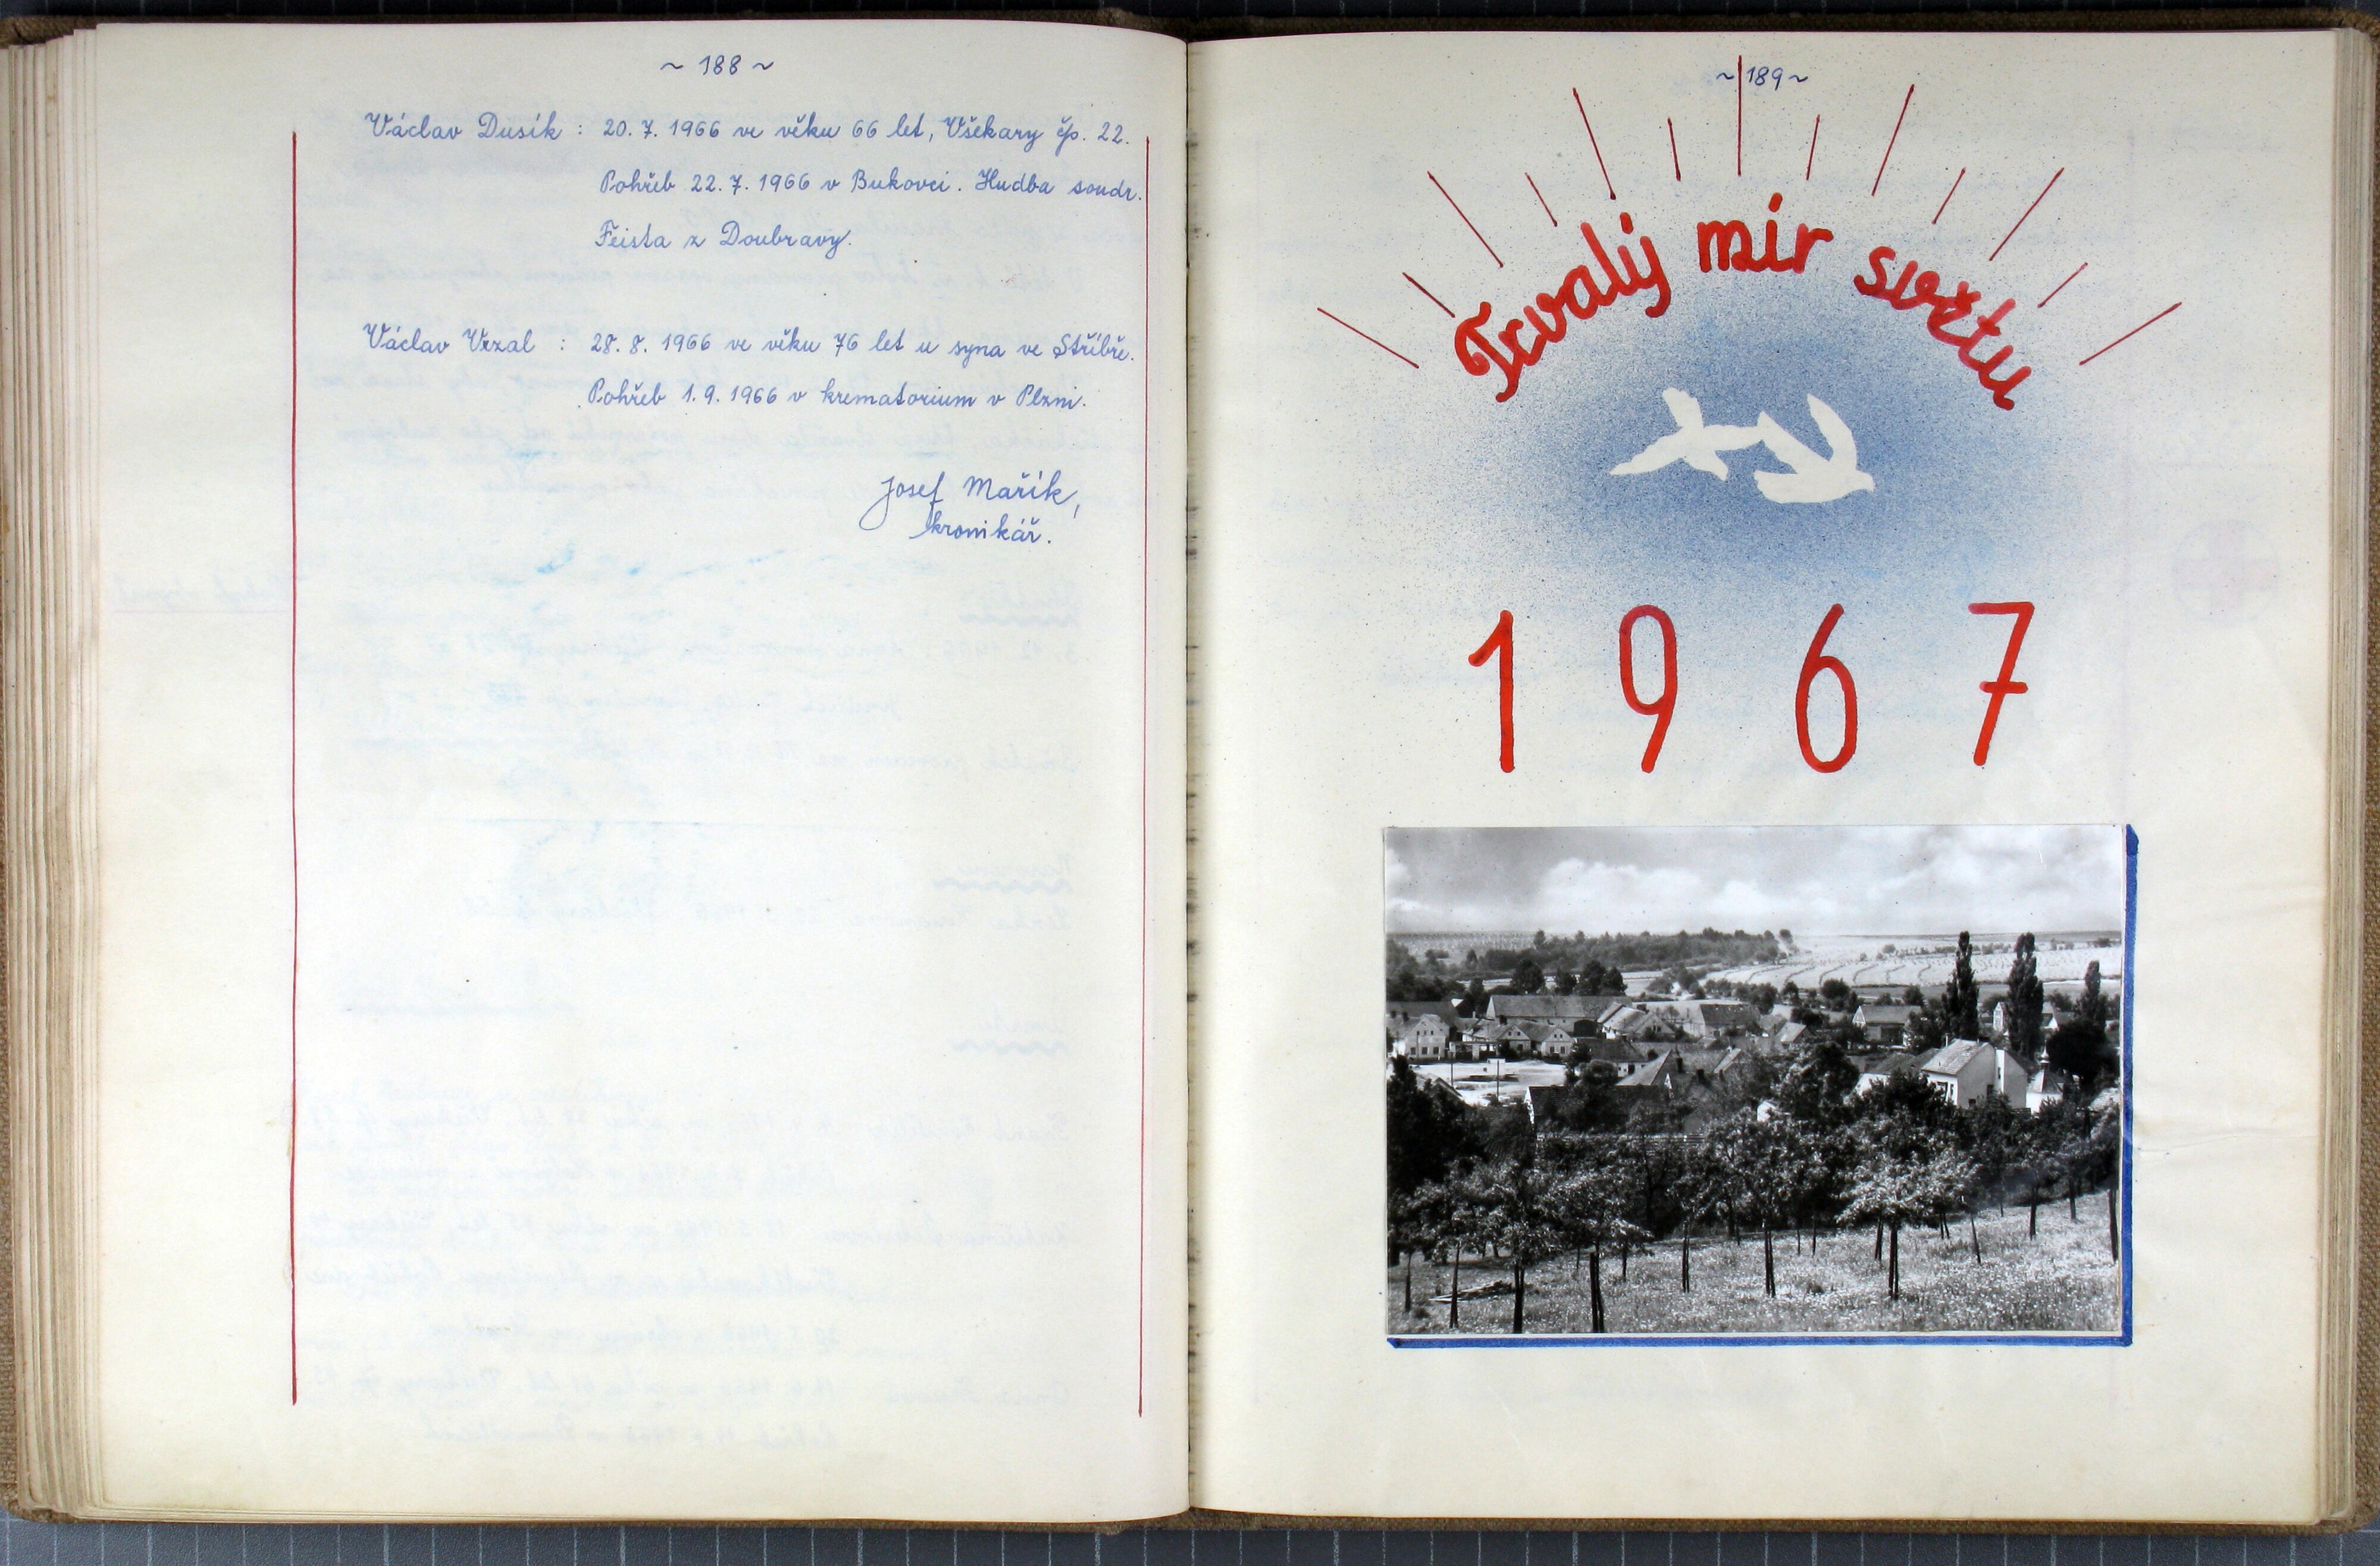 ~ 188 ~
Václav Dusík : 20. 7. 1966 ve věku 66 let, Všekary čp. 22.
Pohřeb 22. 7. 1966 v Bukovci. Hudba soudr.
Feista z Doubravy.
Václav Vrzal : 28. 8. 1966 ve věku 76 let u syna ve Stříbře.
Pohřeb 1. 9. 1966 v krematorium v Plzni.
Josef Mařík,
kronikář.
~ 189 ~
Trvalý mír světu
1967